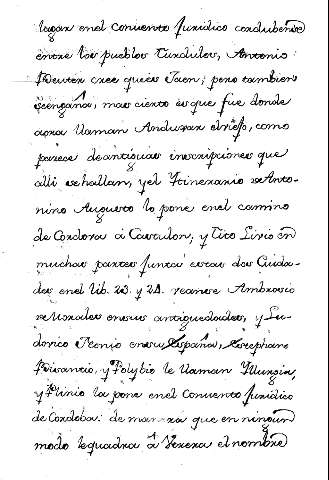 lugar enel Convento Juridico cordubense
entre los pueblos Turdulos, Antonio
Beuter cree quees Jaen; pero tambien
seengaña, mas cierto es que fue donde
aora llaman Anduxar elviejo, como
parece deantiguas inscripciones que
alli sehallan, yel Itinerario deAnto-
nino Augusto lo pone enel camino
de Cordova á Castulon; y Tito Livio en
muchas partes junta estas dos Ciuda-
des enel lib. 22. y 24. veanse Ambrosio
deMorales ensus antiguedades, y Lu-
dovico Nonio ensu España, Estephano
Bisancio, y Polybio le llaman Illurgia,
y Plinio la pone enel Convento Juridico
de Cordoba: de manera que en ningun
modo lequadra á Xerez el nombre